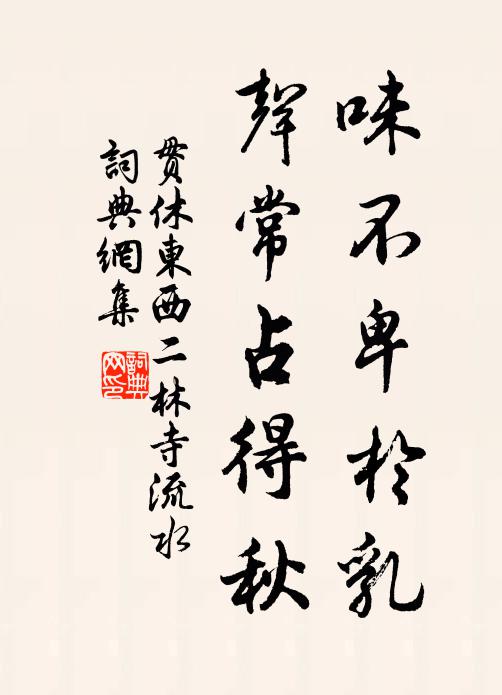 味不卑於乳
聲常占得秋
貫休東西二林寺流水
詞典網集
詞典網印